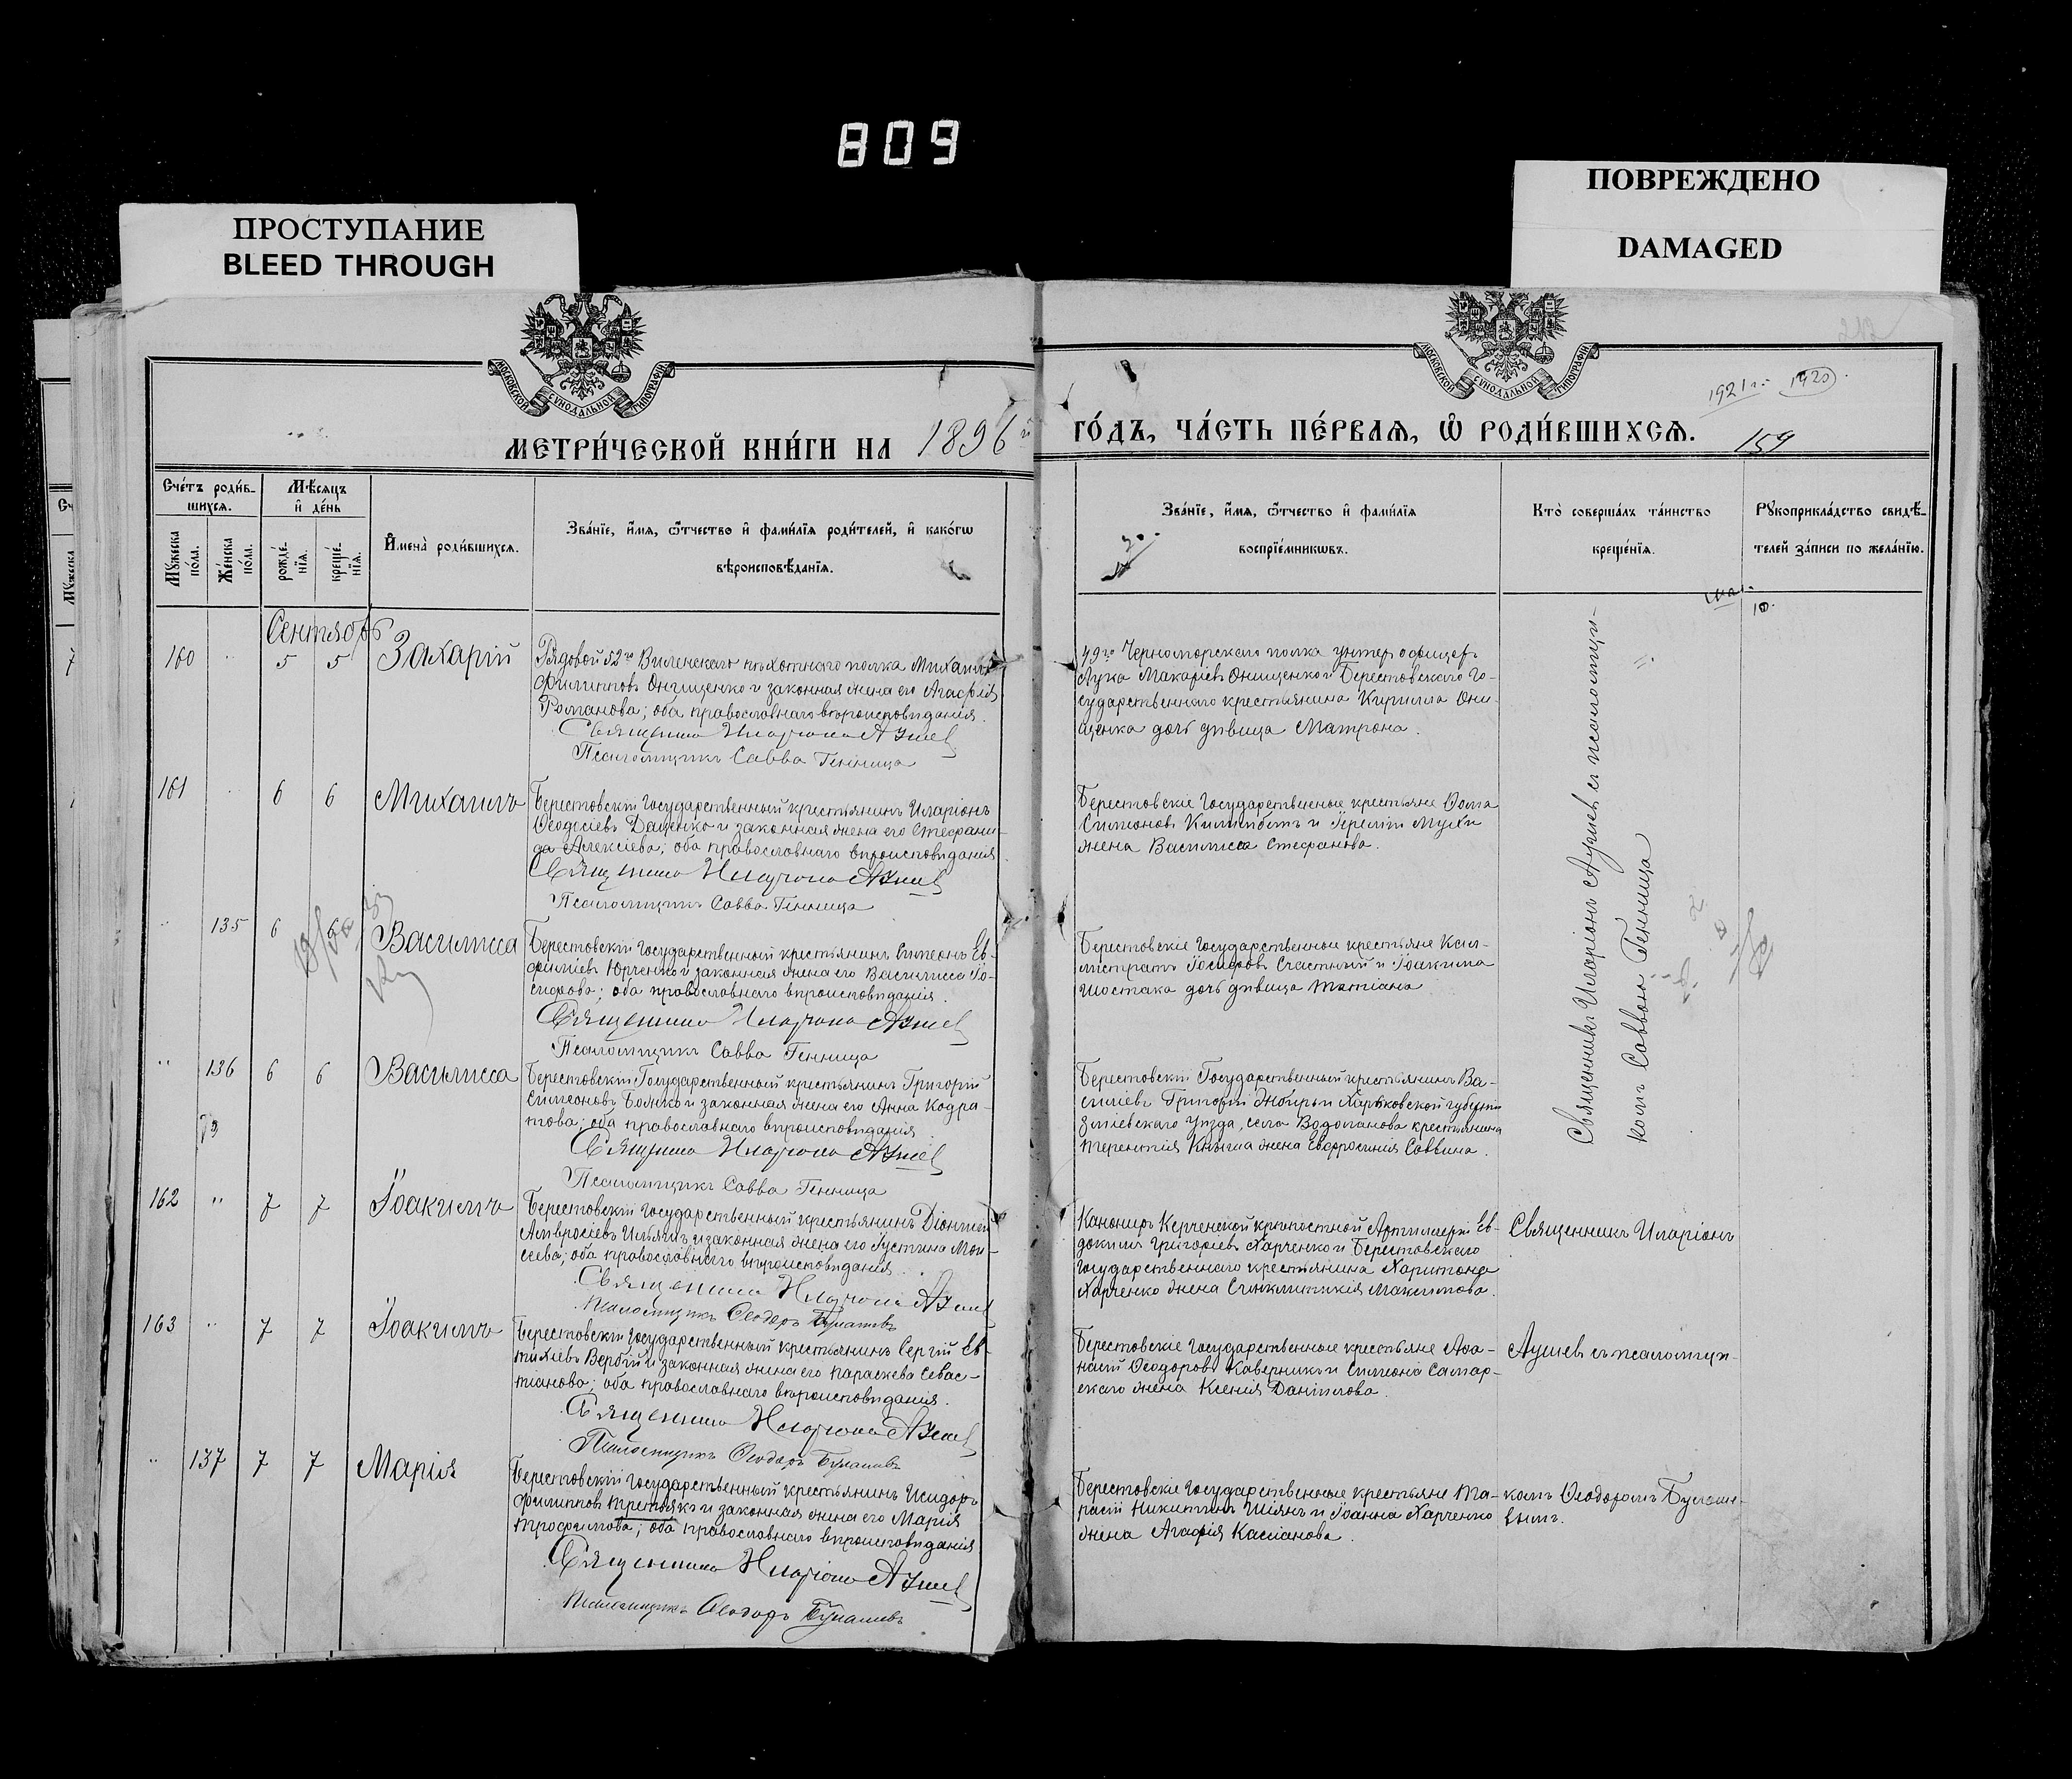 809
ПРОСТУПАНИЕ
BLEED THROUGH
ПОВРЕЖДЕНО
DAMAGED
МОСКОВСКОЙ СУНОДАЛЬНОЙ ТИПОГРАФІИ
МОСКОВСКОЙ СУНОДАЛЬНОЙ ТИПОГРАФІИ
1921 г. 1920
МЕТРИ́ЧЕСКОЙ КНИ́ГИ НА 1896 й
ГО́ДЪ, ЧА́СТЬ ПЕ́РВАѦ, Ѡ РОДИ́ВШИХСѦ. 159
Сче́тъ роди́в-
шихсѧ.
Мꙋ́жеска по́ла.
Же́нска по́ла.
Мѣ́сѧцъ
и҆ де́нь
рожде́-
нїѧ.
креще́-
нїѧ.
И҆мена̀ роди́вшихсѧ.
Зва́нїе, и҆́мѧ, ѻ҆́тчество и҆ фами́лїѧ роди́телей, и҆ како́гѡ
вѣроисповѣ́данїѧ.
Зва́нїе, и҆́мѧ, ѻ҆́тчество и҆ фами́лїѧ
воспрїе́мникѡвъ.
Кто̀ соверша́лъ та́инство
креще́нїѧ.
Рꙋкоприкла́дство свидѣ́-
телей за́писи по жела́нїю.
Сентябрь
160 " 5 5 Захарій
Рядовой 52го Виленскаго пѣхотнаго полка Михаилъ
Филипповъ Онищенко и законная жена его Агафія
Романова; оба православнаго вѣроисповѣданія.
Священникъ Иларіонъ Аушевъ
Псаломщикъ Савва Генница
49го Черноморскаго полка унтеръ офицеръ
Лука Макаріевъ Онищенко и Берестовскаго Го-
сударственнаго крестьянина Кирилла Они-
щенка дочь дѣвица Матрона.
161 " 6 6 Михаилъ
Берестовскій Государственный крестьянинъ Иларіонъ
Ѳеодосіевъ Даценко и законная жена его Стефани-
да Алексіева; оба православнаго вѣроисповѣданія
Священникъ Иларіонъ Аушевъ
Псаломщикъ Савва Генница
Берестовскіе Государственные крестьяне Ѳома
Симеоновъ и
жена Василисса Стефанова.
" 135 6 6 Василисса
Берестовскій Государственный крестьянинъ Симеонъ Ев-
фиміевъ Юрченко и законная жена его Василисса Іо-
сифова; оба православнаго вѣроисповѣданія.
Священникъ Иларіонъ Аушевъ
Псаломщикъ Савва Генница
Берестовскіе Государственные крестьяне Кал-
листратъ Іосифовъ Счастный и Іоакима
Шостака дочь дѣвица Татіана
" 136 6 6 Василисса
Берестовскій Государственный крестьянинъ Григорій
Симеоновъ Бойко и законная жена его Анна Кодра-
това; оба православнаго вѣроисповѣданія
Священникъ Иларіонъ Аушевъ
Псаломщикъ Савва Генница
Берестовскій Государственный крестьянинъ Ва-
силіевъ Григорій и Харьковской губерніи
Зміевскаго Уѣзда, села Водолажова крестьянина
Терентія жена Евфросинія Саввина.
Священникъ Иларіонъ Аушевъ съ псаломщи-
комъ Саввою Генница
162 " 7 7 Іоакимъ
Берестовскій Государственный крестьянинъ Діонисій
Амвросіевъ и законная жена его Іустина Мои-
сеева; оба православнаго вѣроисповѣданія.
Священникъ Иларіонъ Аушевъ
Псаломщикъ Ѳеодоръ Булашевъ
Канониръ Керченской крѣпостной Артиллеріи Ев-
докимъ Григоріевъ Харченко и Берестовскаго
Государственнаго крестьянина Харитона
Харченко жена Синклитикія Максимова.
Священникъ Иларіонъ
163 " 7 7 Іоакимъ
Берестовскій Государственный крестьянинъ Сергій Ев-
тихіевъ Вербій и законная жена его Параскева Севас-
тіанова; оба православнаго вѣроисповѣданія.
Священникъ Иларіонъ Аушевъ
Псаломщикъ Ѳеодоръ Булашевъ
Берестовскіе Государственные крестьяне Аѳа-
насій Ѳеодоровъ Каверникъ и Симеона Самар-
скаго жена Ксенія Даніилова.
Аушевъ съ псаломщи-
" 137 7 7 Марія
Берестовскій Государственный крестьянинъ Исидоръ
Филипповъ Третьякъ и законная жена его Марія
Трофимова; оба православнаго вѣроисповѣданія
Священникъ Иларіонъ Аушевъ
Псаломщикъ Ѳеодоръ Булашевъ
Берестовскіе Государственные крестьяне Та-
расій Никитинъ Шіянъ и Іоанна Харченко
жена Агафія Кассіанова.
комъ Ѳеодоромъ Булаше-
вымъ.